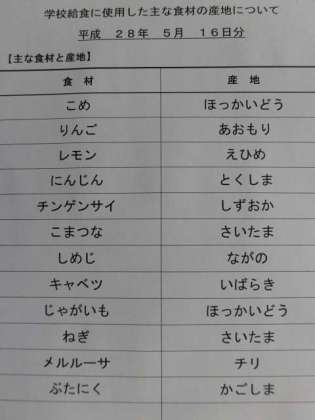 学校給食に使用した主な食材の産地について
平成 28年 5月 16日分
【主な食材と産地】
食材 産地
こめ ほっかいどう
りんご あおもり
レモン えひめ
にんじん とくしま
チンゲンサイ しずおか
こまつな さいたま
しめじ ながの
キャベツ いばらき
じゃがいも ほっかいどう
ねぎ さいたま
メルルーサ チリ
ぶたにく かごしま